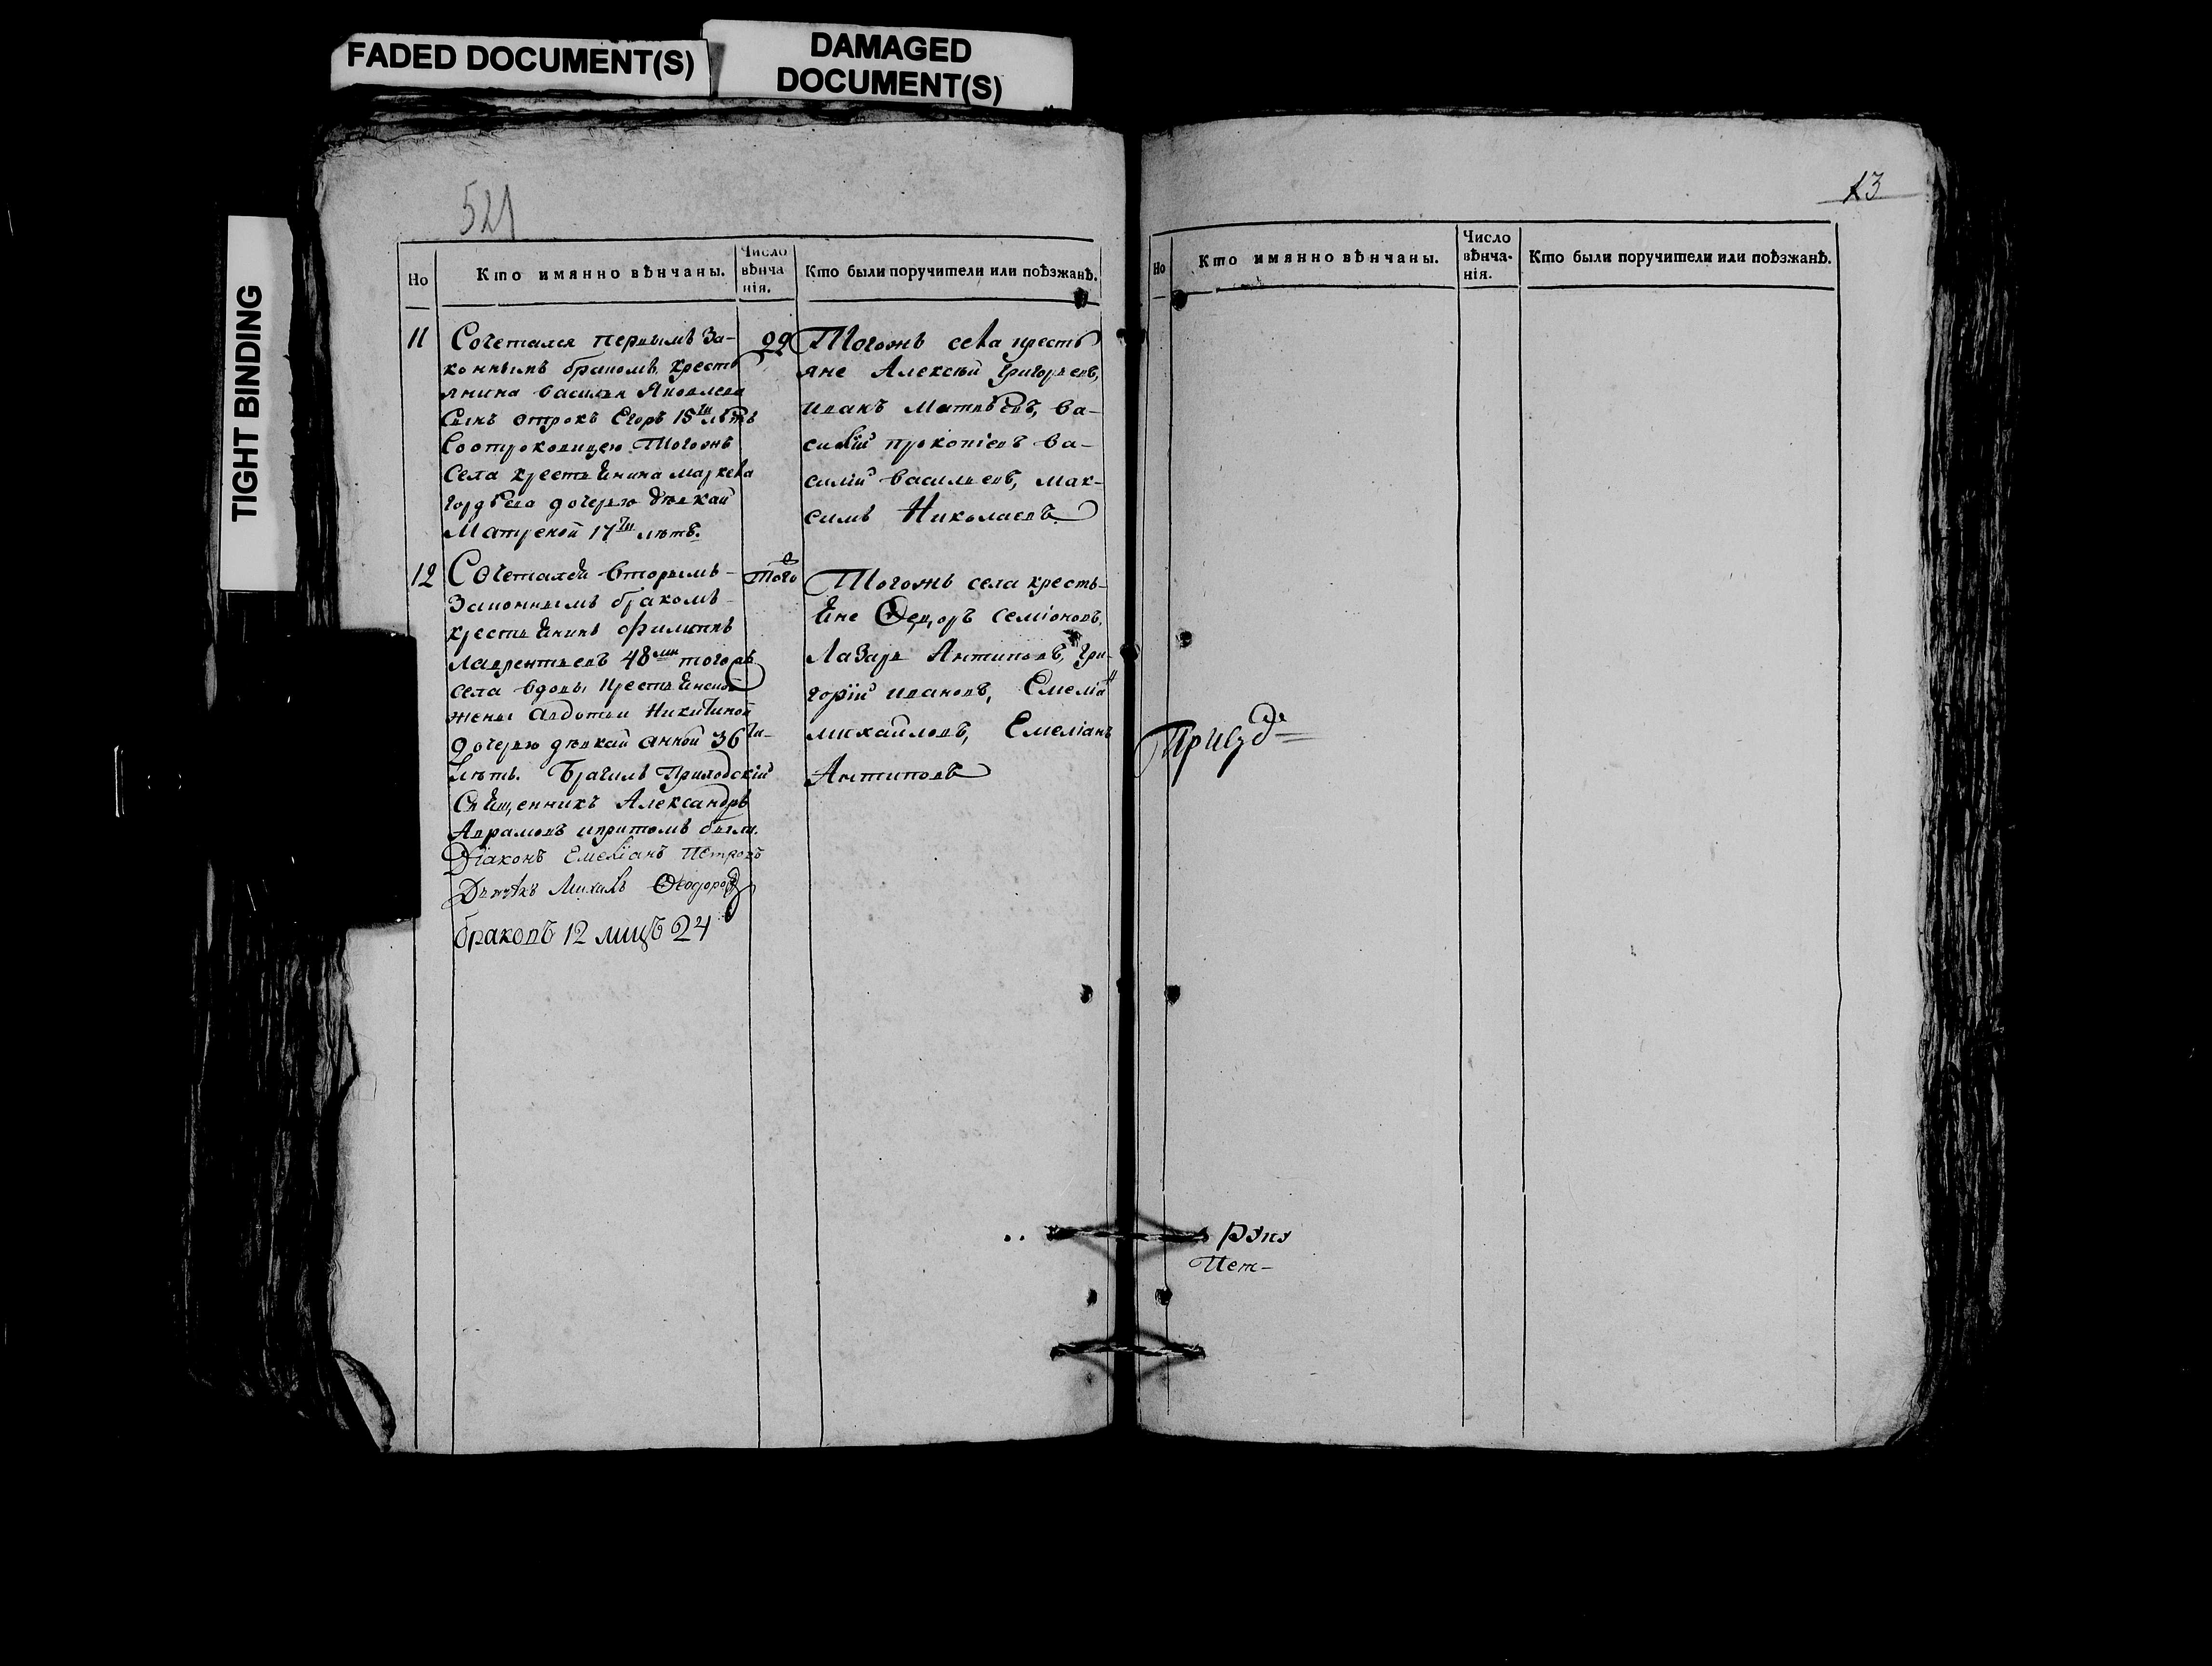 FADED DOCUMENT(S)
DAMAGED
DOCUMENT(S)
TIGHT BINDING
521
Но
Кто имянно вѣнчаны.
Число
вѣнча
нія.
Кто были поручители или поѣзжанѣ.
11
Сочетался первымъ За-
коннымъ бракомъ кресть
янина василья Яковлева
Сынъ отрокъ Егоръ 18ти лѣтъ
Соотроковицею Тогожъ
Села крестьянина маркела
гордѣева дочерью дѣвкай
Матреной 17ти лѣтъ.
22
Тогожъ села кресть
яне Алексѣй григорьевъ,
иванъ Матвѣевъ, Ва-
силій прокопіевъ ва-
силій васильевъ, мак-
симъ Николаевъ
12
Сочетался вторымъ
Законнымъ бракомъ
крестьянинъ филиппъ
лаврентьевъ 48ми тогожъ
села вдовы крестьянской
жены авдотьи Никитиной
дочерью дѣвкай анной 36ти
лѣтъ. Брачилъ Приходскій
Священникъ Александръ
Аврамовъ ипритомъ были.
Діаконъ Емеліанъ Петровъ
Дьячекъ Михаилъ Ѳеодоровъ
браковъ 12 лицъ 24
того
Тогожъ села кресть-
яне Ѳедоръ семіоновъ,
Лазарь Антиповъ, гри-
горій ивановъ, Емеліанъ
михайловъ, Емеліанъ
Антиповъ
13
Но
Кто имянно вѣнчаны.
Число
вѣнча-
нія.
Кто были поручители или поѣзжанѣ.
руку
Пет-